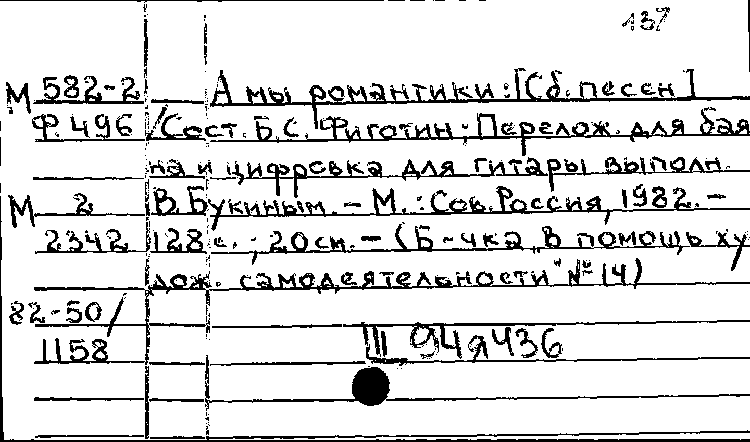 137
М 582-2 А мы романтики: [Сб. песен]
Ф. 496 /Сост. Б.С. Фиготин; Перелож. для бая
на и цифровка для гитары выполн.
М 2 В. Букиным. – М.: Сов. Россия, 1982. –
2342 128 с.; 20 см. – (Б-чка „В помощь ху
дож. самодеятельности" № 14)
82-50/
1158 Ш 94я436